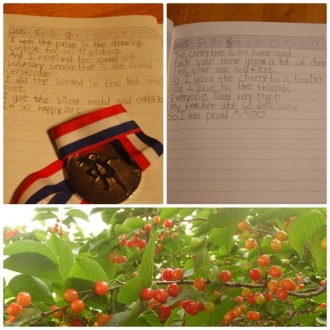 2015- 5- 3-
I won the prize in the drawing
contest
And I received the award of
voluntary service that is the award
certificate
I did the second in the
meet.
I got the silver medal and
I'm SO happy
2015- 5- 11-
The cherry tree is my home yard
Each year there grow a lot of
this year was
So, I gave the cherry to a teacher
and I gave to the friends.
Everyone liked very much
My teacher ate so deliciously
So, I was proud ^-^♡♡